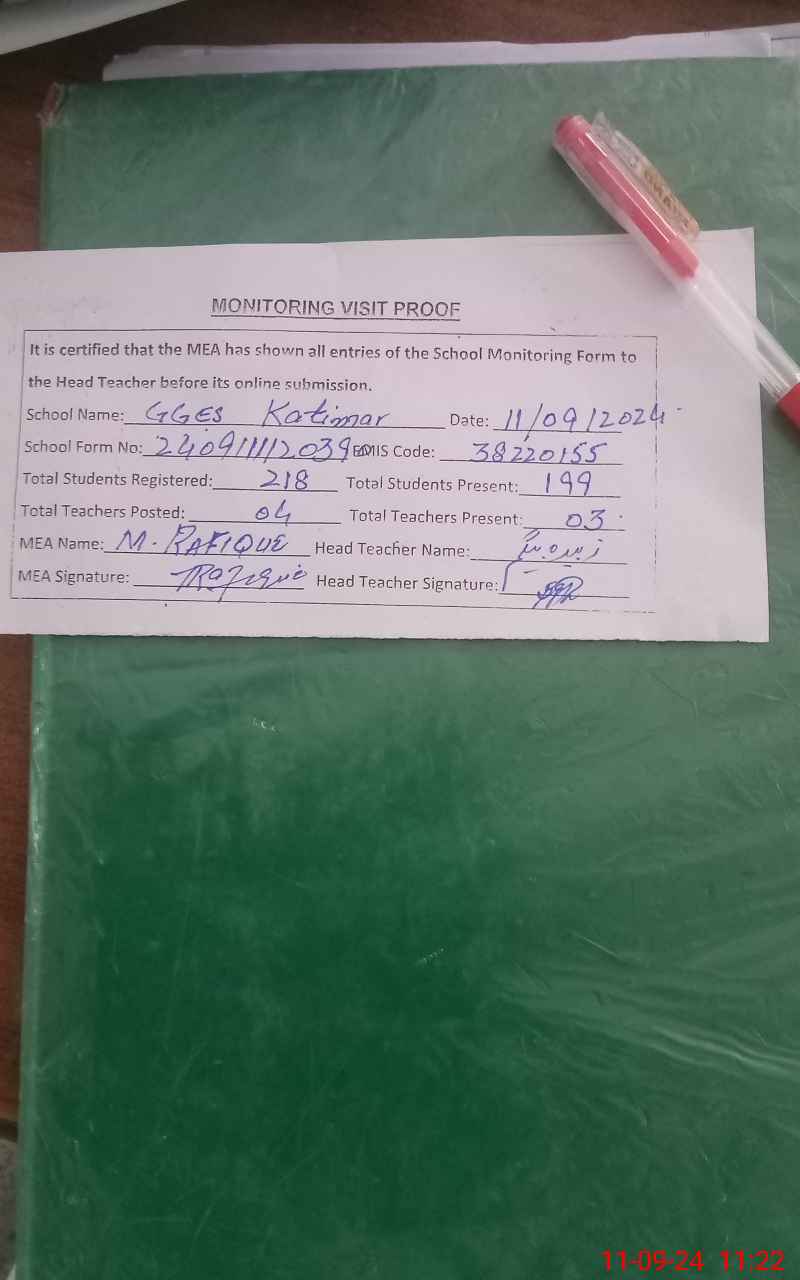 MONITORING VISIT PROOF
It is certified that the MEA has shown all entries of the School Monitoring Form to
the Head Teacher before its online submission.
School Name: GGES Katimar Date: 11/09/2024
School Form No: EMIS Code: 38220155
Total Students Registered: 218 Total Students Present: 199
Total Teachers Posted: 04 Total Teachers Present: 03
MEA Name: M. RAFIQUE Head Teacher Name:
MEA Signature: Head Teacher Signature:
11-09-24 11:22